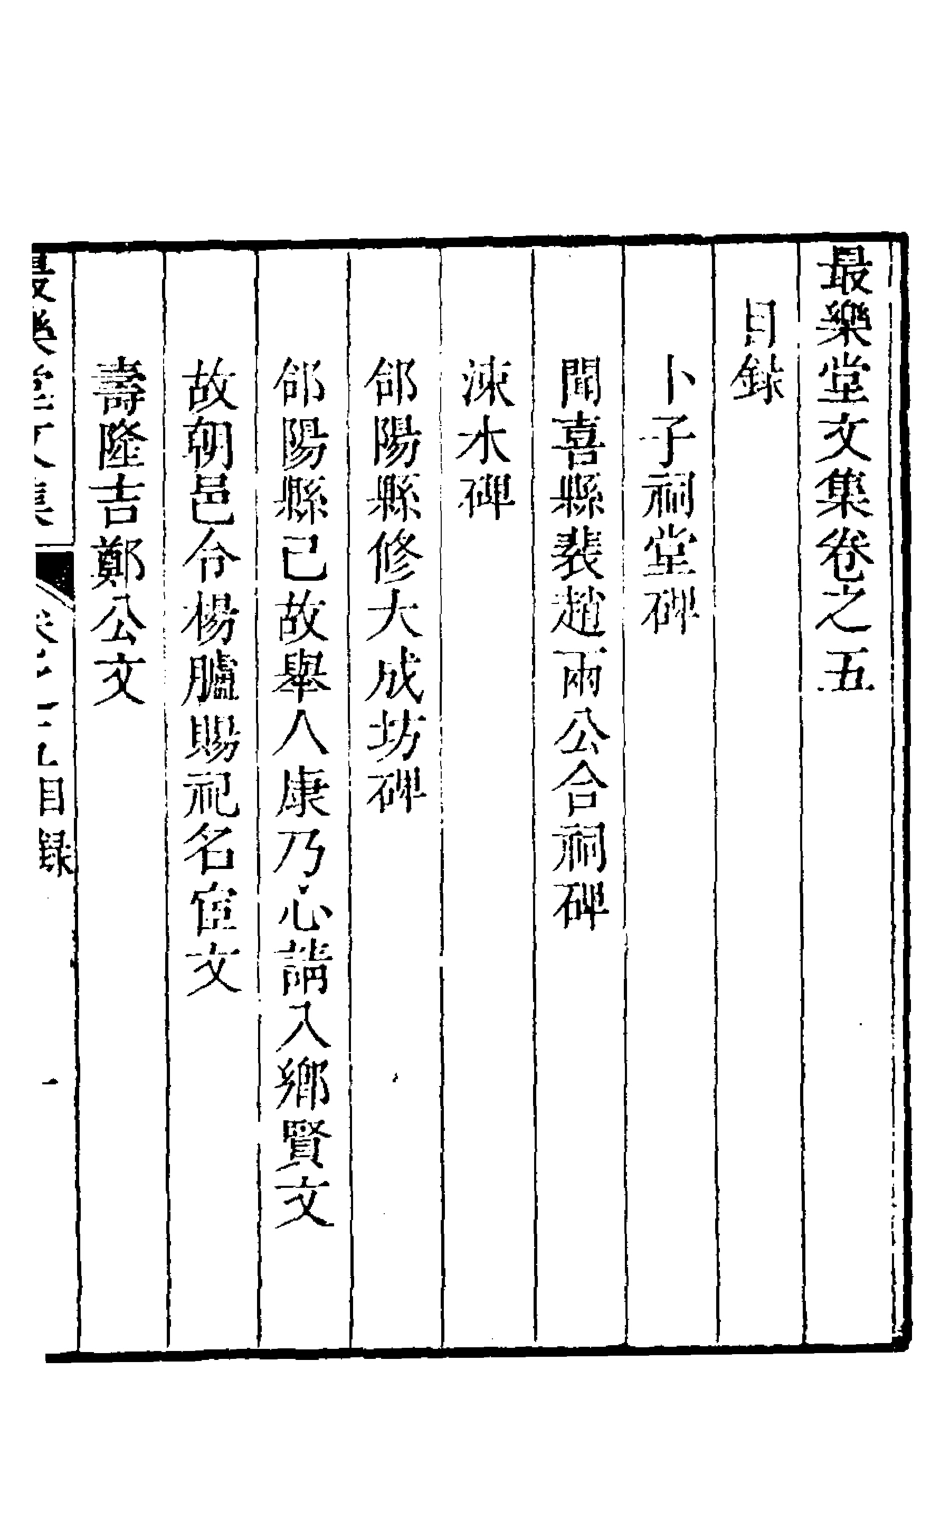 最樂堂文集卷之五
目錄
卜子祠堂碑
聞喜縣裴趙兩公合祠碑
涑水碑
郃陽縣修大成坊碑
郃陽縣已故舉人康乃心請入鄉賢文
故朝邑令楊臚賜祀名宦文
壽隆吉鄭公文
最樂堂文集 卷之五目錄 一